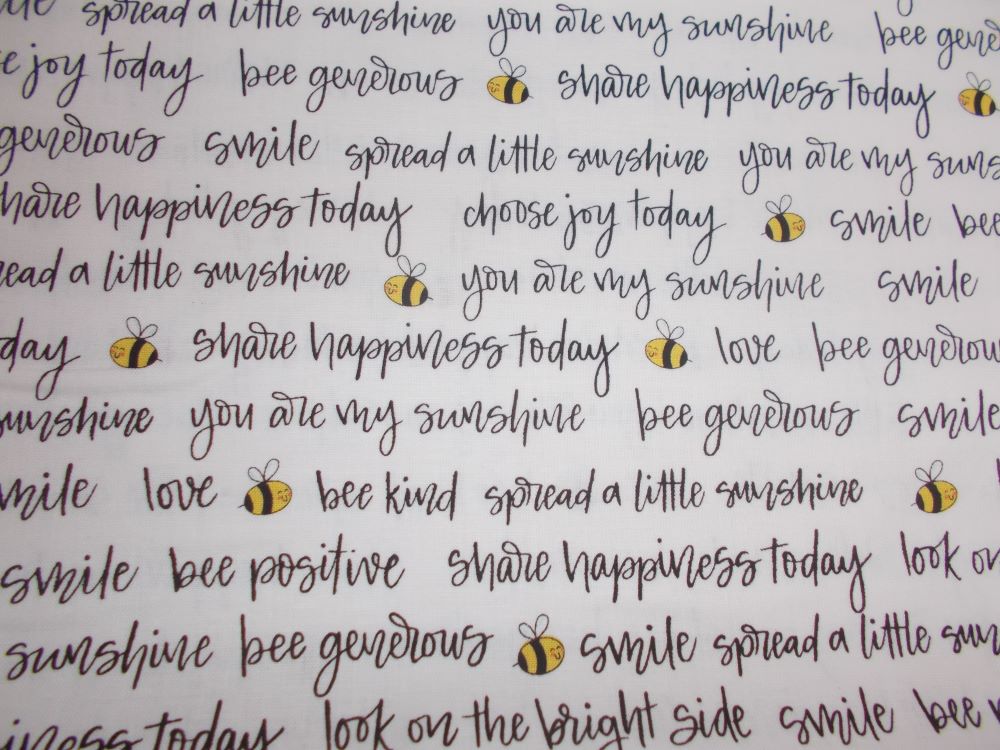 spread a little sunshine you are my sunshine bee gene
e joy today bee generous share happiness today
generous smile spread a little sunshine you are my suns
hare happiness today choose joy today smile bee
read a little sunshine you are my sunshine smile
day share happiness today love bee generou
sunshine you are my sunshine bee generous smile
mile love bee kind spread a little sunshine
smile bee positive share happiness today look on
sunshine bee generous smile spread a little sun
iness today look on the bright side smile bee